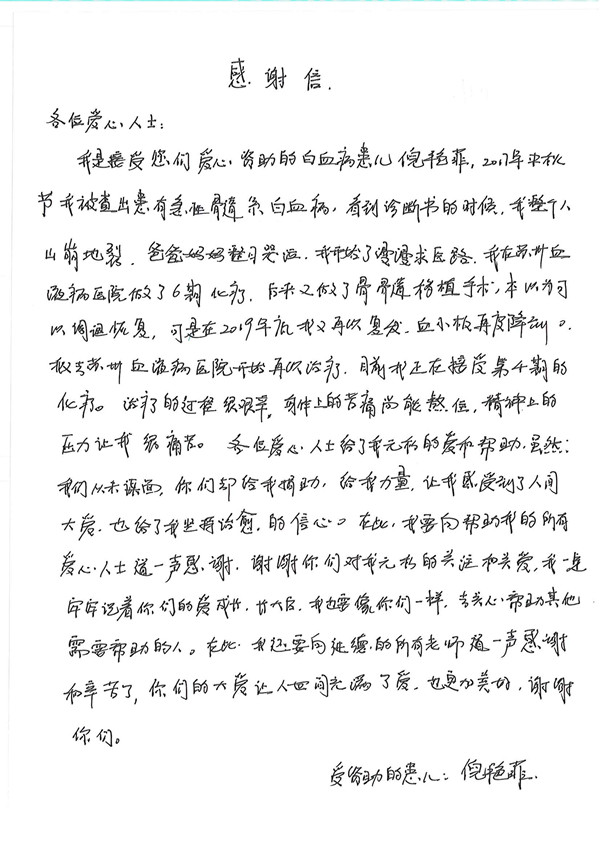 感谢信.
各位爱心人士：
我是接受您们爱心资助的白血病患儿倪艳菲，2017年中秋
节我被查出患有急性骨髓系白血病，看到诊断书的时候，我整个人
山崩地裂，爸爸妈妈整日哭泣。我开始了漫漫求医路。我在苏州血
液病医院做了6期化疗，后来又做了骨骨髓移植手术，本以为可
以调理恢复，可是在2019年底我又再次复发，血小板再度降到0。
被去苏州血液病医院开始再次治疗，目前我正在接受第4期的
化疗。治疗的过程很艰辛，身体上的苦痛尚能熬住，精神上的
压力让我很痛苦。各位爱心人士给了我无私的爱和帮助，虽然：
我们从未谋面，你们却给我捐助，给我力量，让我感受到了人间
大爱，也给了我坚持治愈，的信心。在此，我要向帮助我的所有
爱心人士道一声感谢，谢谢你们对我无私的关注和关爱，我一定
牢牢记着你们的爱成长，长大后，我也要像你们一样，去关心帮助其他
需要帮助的人。在此我还要向 的所有老师道一声感谢
和辛苦了，你们的大爱让人世间充满了爱，也更加美好，谢谢
你们。
受资助的患儿：倪艳菲.